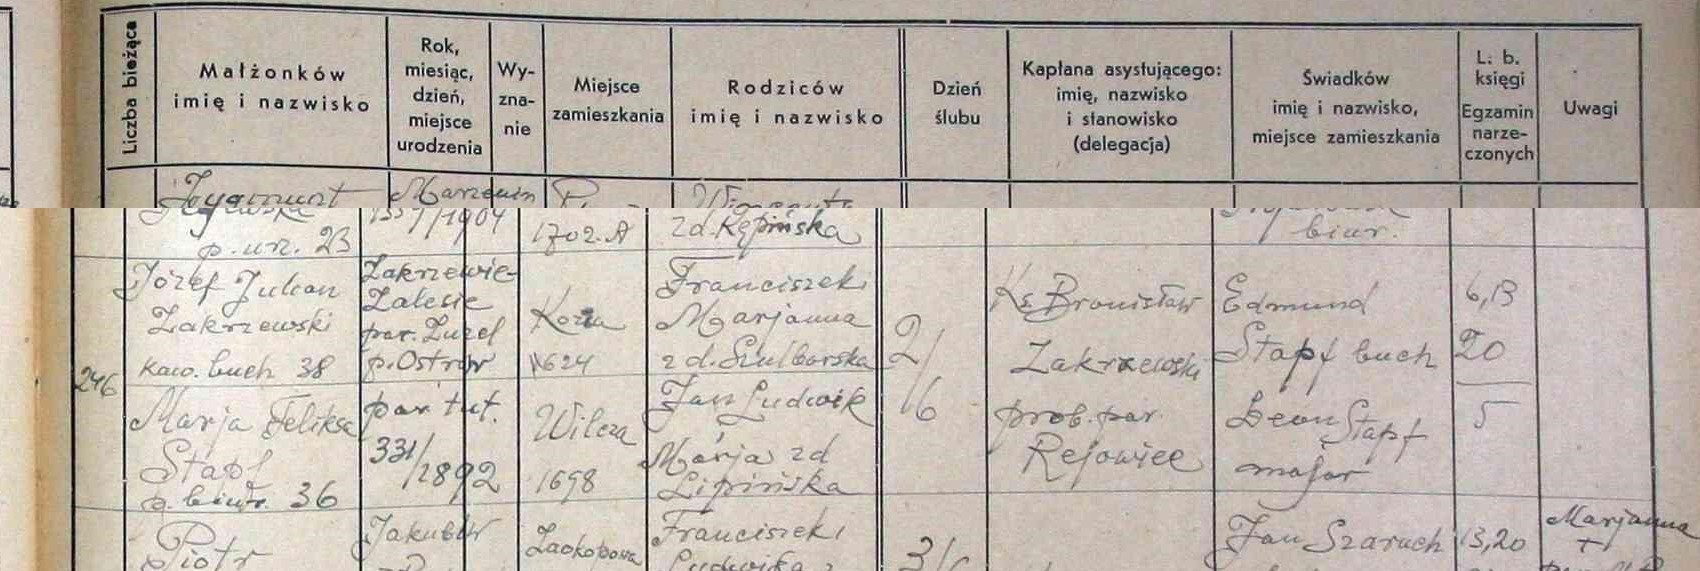 Liczba bieżąca
Małżonków
imię i nazwisko
Rok,
miesiąc,
dzień,
miejsce
urodzenia
Wy-
zna-
nie
Miejsce
zamieszkania
Rodziców
imię i nazwisko
Dzień
ślubu
Kapłana asystującego:
imię, nazwisko
i stanowisko
(delegacja)
Świadków
imię i nazwisko,
miejsce zamieszkania
L: b.
księgi
Egzamin
narze-
czonych
Uwagi
Zygmunt
Marzenin
p. urz. 23
/1904
1702.A
zd. Kępińska
biur.
246
Józef Julian
Zakrzewski
kaw. buch 38
Zakrzewie-
Zalesie
par. Zuzel
p. Ostrów
Koza
N624
Franciszek i
Marjanna
z d. Szulborska
2/6
Ks. Bronisław
Zakrzewski
prob. par
Rejowiec
Edmund
Stapf buch
Leon Stapf
major
6,13
20
5
Marja Feliksa
Stapf
p. biur. 36
par. tut.
331/1892
Wilcza
1698
Jan Ludwik
Marja zd
Lipińska
Piotr
Jakubów
Zakopana
Franciszek i
Ludwika
3/6
Jan Szaruch
13,20
Marjanna
+